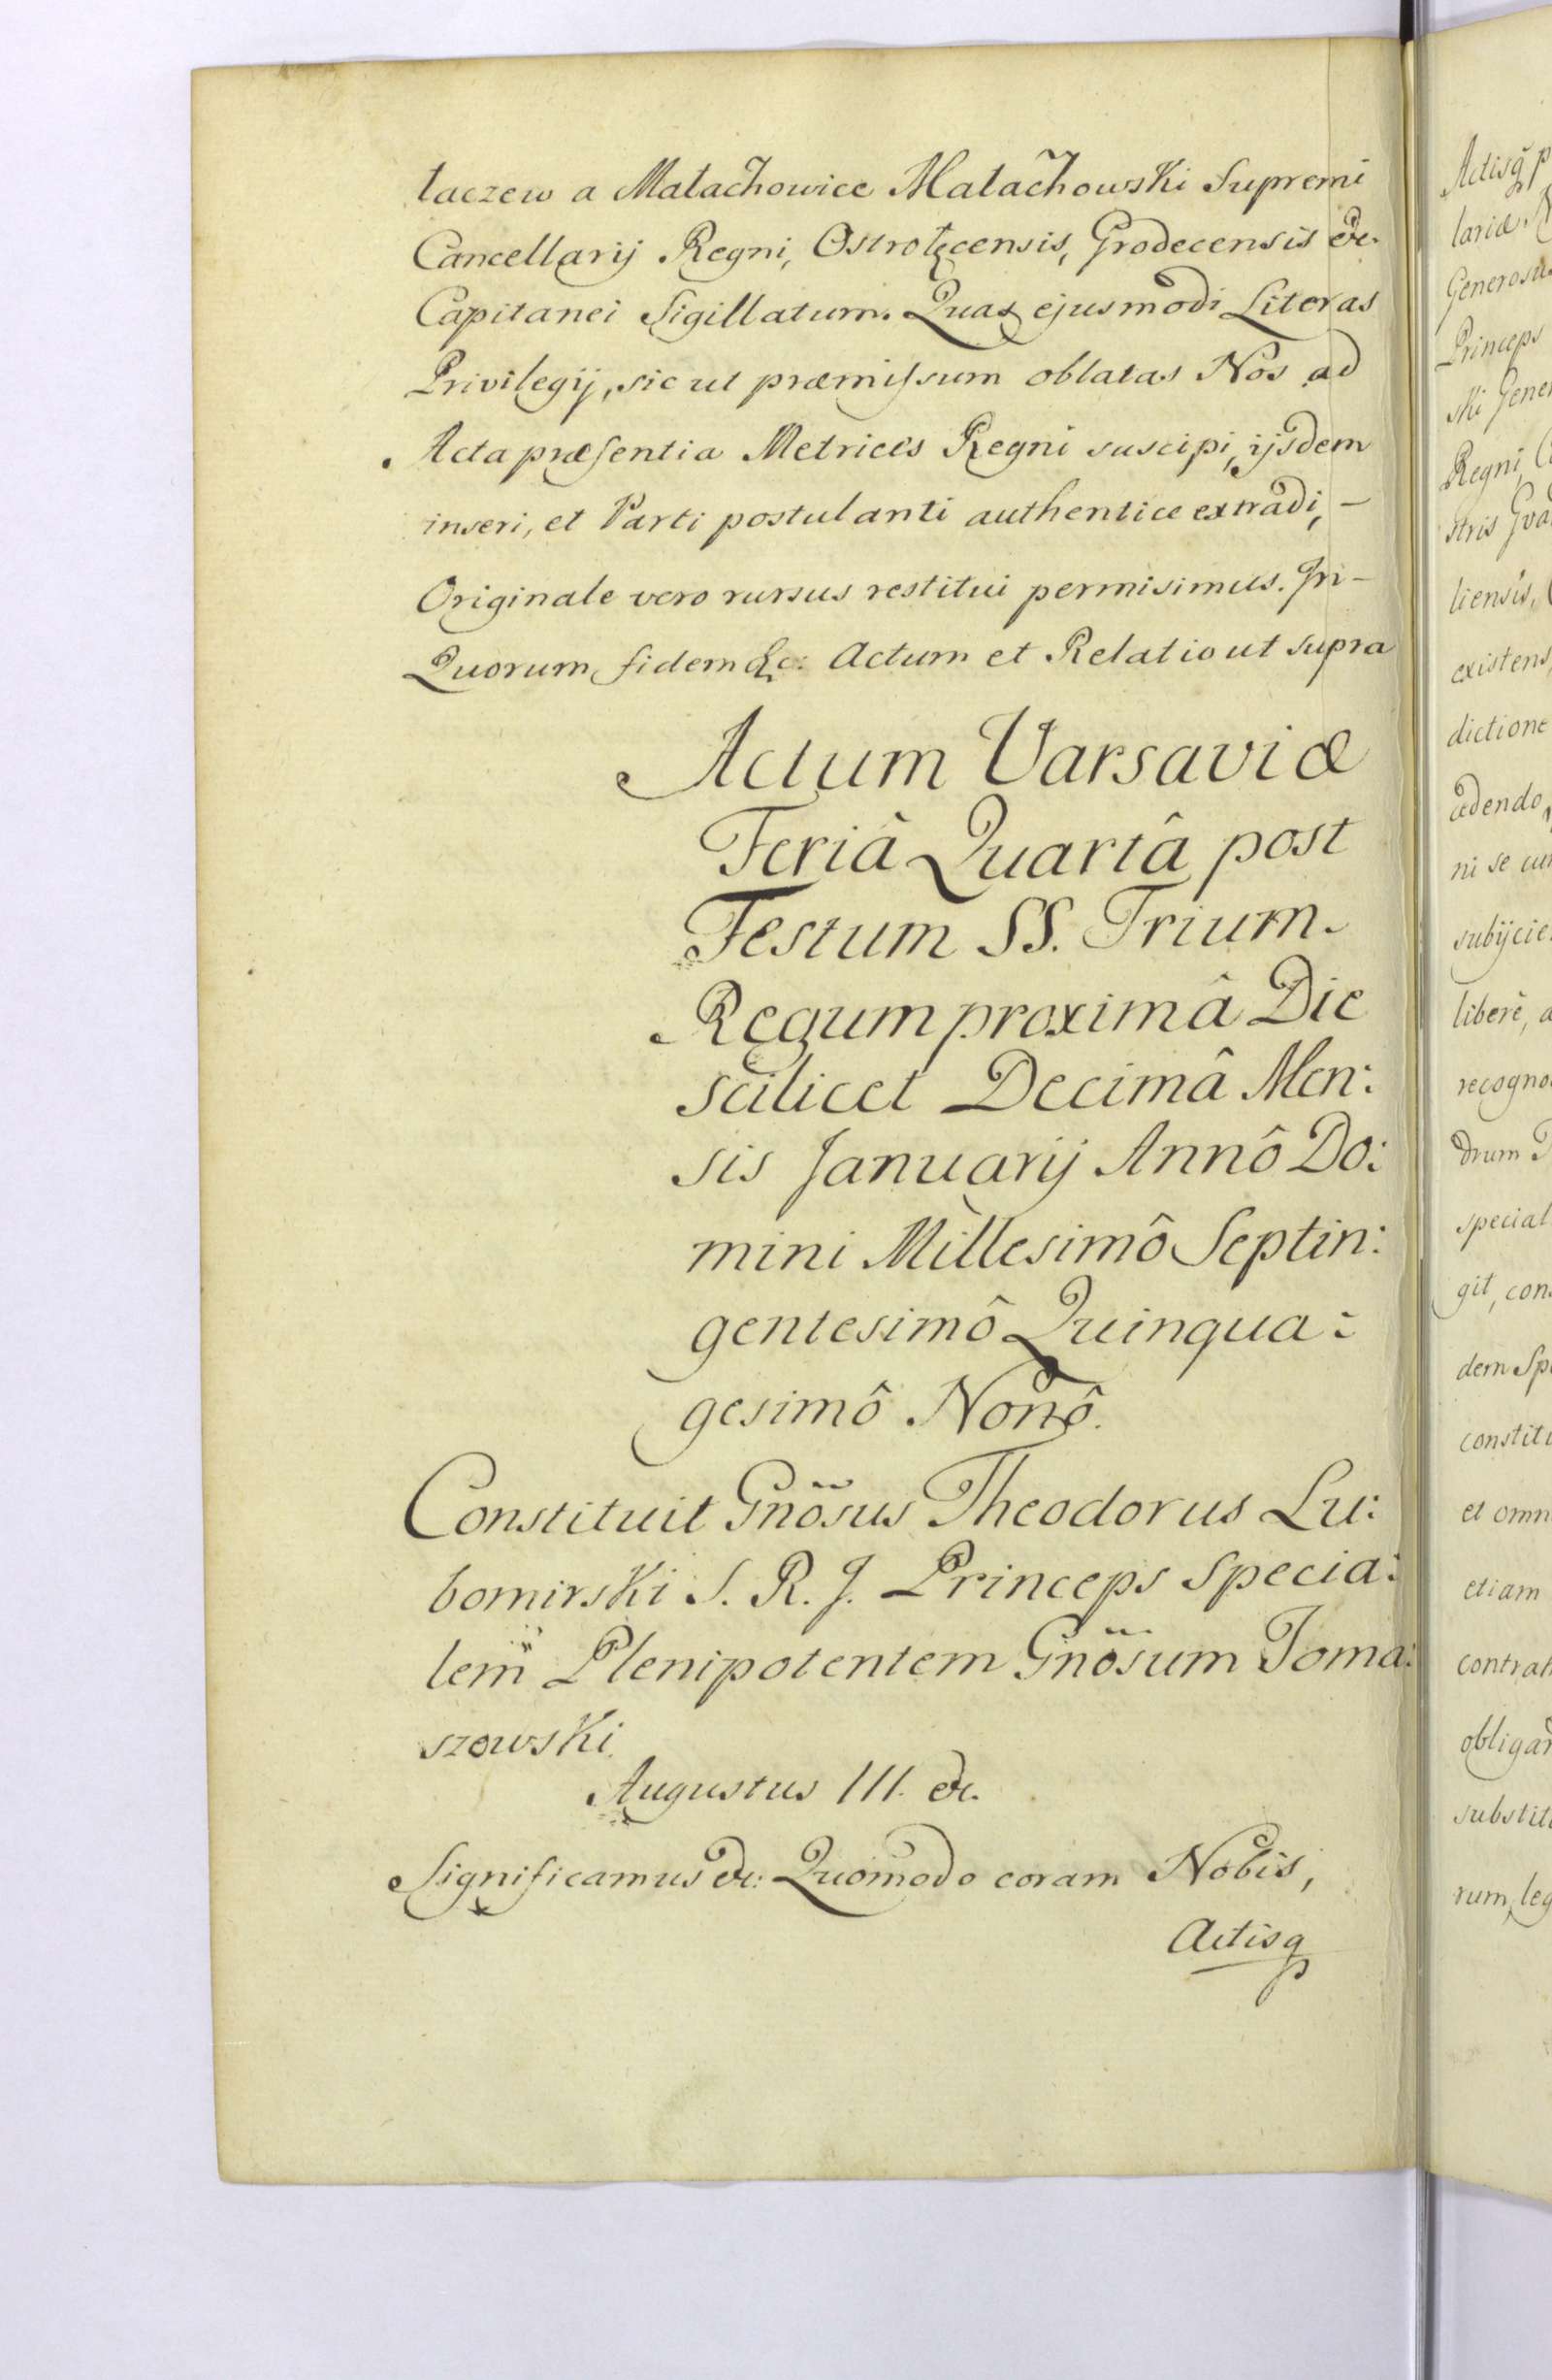 łaczew a Małachowice Małachowski Supremi
Cancellarij Regni, Ostrołęcensis, Grodecensis &c.
Capitanei Sigillatum. Quas ejusmodi Literas
Privilegij, sic ut præmissum oblatas Nos ad
Acta præsentia Metrices Regni suscipi, ijsdem
inseri, et Parti postulanti authentice extradi, –
Originale vero rursus restitui permisimus. In –
Quorum fidem &c: Actum et Relatio ut supra
Actum Varsaviæ
Feriâ Quartâ post
Festum SS. Trium
Regum proximâ Die
scilicet Decimâ Men:
sis Januarij Annô Do:
mini Millesimô Septin:
gentesimô Quinqua:
gesimô Nonô.
Constituit Gnõsus Theodorus Lu:
bomirski S. R. J. Princeps specia:
lem Plenipotentem Gnõsum Toma:
szowski.
Augustus III. &c.
Significamus &c: Quomodo coram Nobis,
Actisq
Actisq p
lariæ.
Generosus
Princeps
ski Gener
Regni,
stris
liensis,
existens,
dictione
cedendo,
ni se cum
subijcie
libere, a
recogno
drum
special
git, con
dem Spe
constitu
et omn
etiam
contrah
obligan
substit
rum, leg